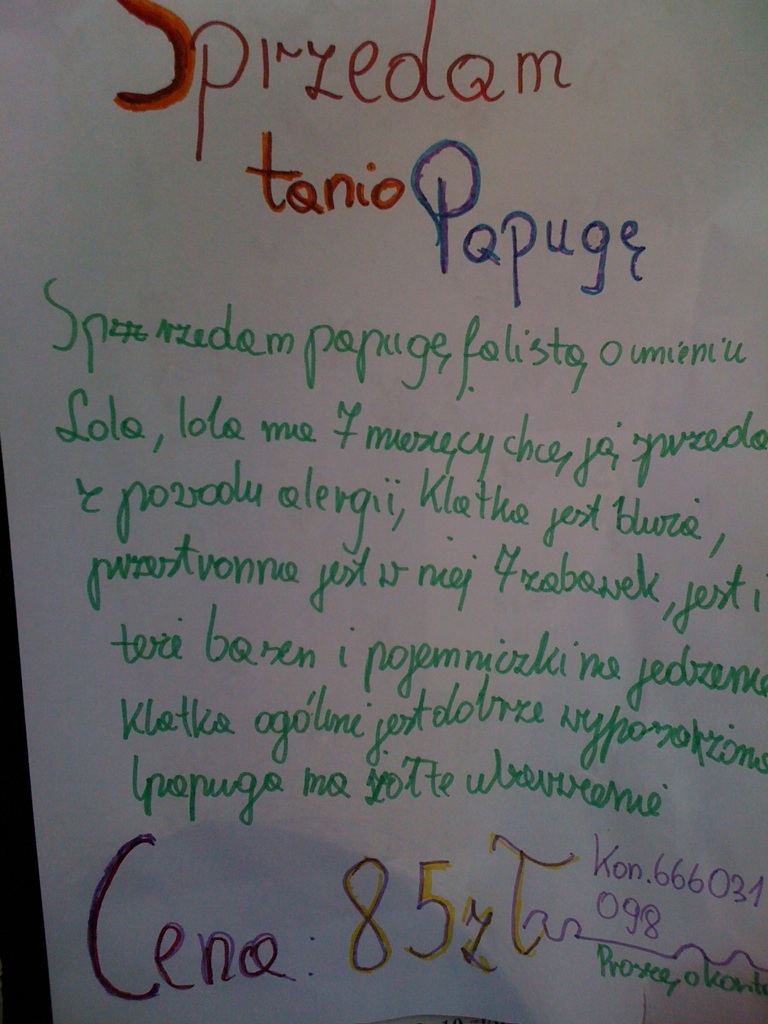 Sprzedam
tanio Papugę
Sprzedam papugę falistą o imieniu
Lola, lola ma 7 miesięcy chcę ją sprzeda
z powodu alergii, Klatka jest duża,
przestronna jest w niej 7 zabawek, jest i
też basen i pojemniczki na jedzenie
Klatka ogólnie jest dobrze wyposażona
papuga ma żółte ubarwienie
Cena: 85 zł
Kon. 666031
098
Proszę o konta